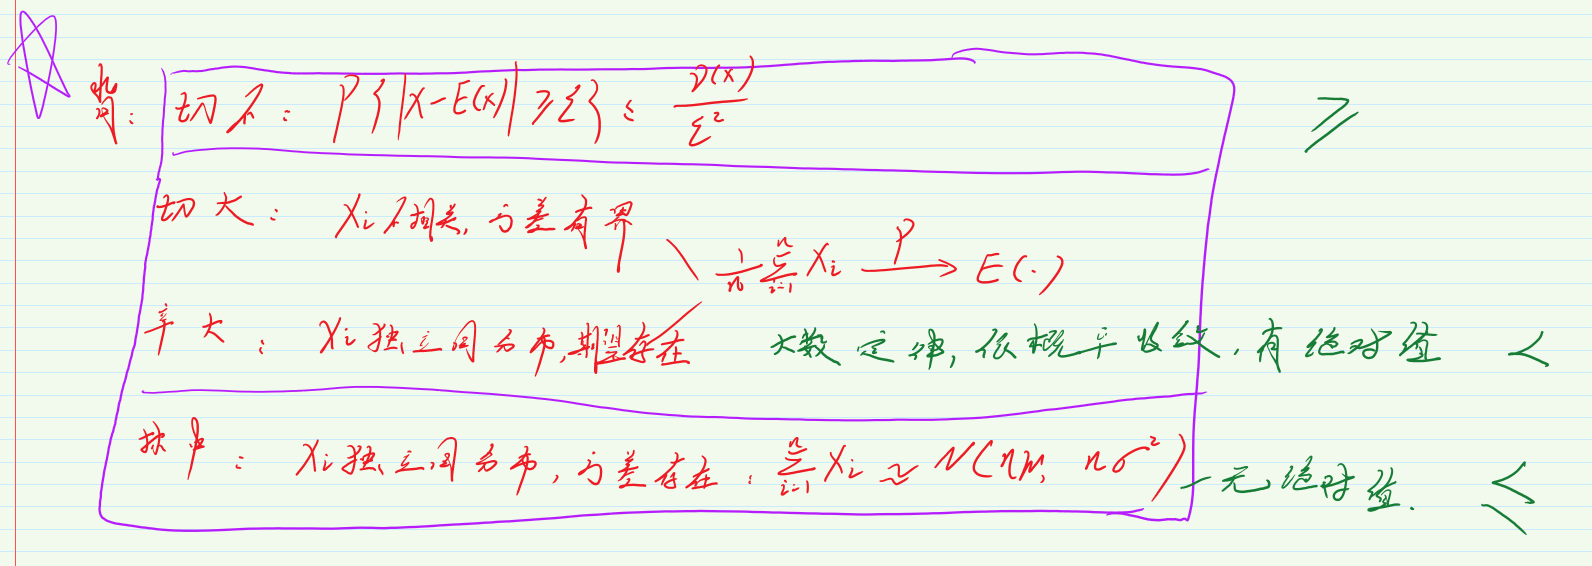 切不: P{|X-E(X)|≥ε} ≤ D(X)/ε² ≥
切大: Xi不相关,方差有界
1/n ∑_{i=1}^{n} Xi —P→ E(·)
辛大: Xi独立同分布,期望存在 大数定律,依概率收敛,有绝对值 <
棣中: Xi独立同分布,方差存在: ∑_{i=1}^{n} Xi ~ N(nμ, nσ²) 一无绝对值. ≤